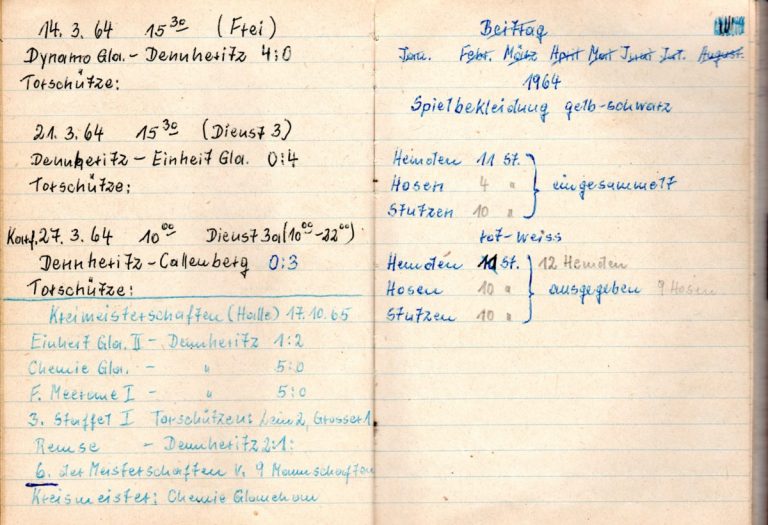 14. 3. 64 15³⁰ (Frei)
Dynamo Gla. - Dennheritz 4:0
Torschütze:
21. 3. 64 15³⁰ (Dienst 3)
Dennheritz - Einheit Gla. 0:4
Torschütze:
Karf. 27. 3. 64 10⁰⁰ Dienst 3a (10⁰⁰-22⁰⁰)
Dennheritz - Callenberg 0:3
Torschütze:
Kreimeisterschaften (Halle) 17.10.65
Einheit Gla. II - Dennheritz 1:2
Chemie Gla. - " 5:0
F. Meerane I - " 5:0
3. Staffel I Torschützen: 2, Grosser 1
Remse - Dennheritz 2:1:
6. der Meisterschaften v. 9 Mannschaften
Kreismeister: Chemie Glauchau
Beitrag
Jan. Febr. März April Mai Juni Jul. August.
1964
Spielbekleidung gelb-schwarz
Hemden 11 St.
Hosen 4 " eingesammelt
Stutzen 10 "
rot-weiss
Hemden St. 12 Hemden
Hosen 10 " ausgegeben 9 Hosen
Stutzen 10 "